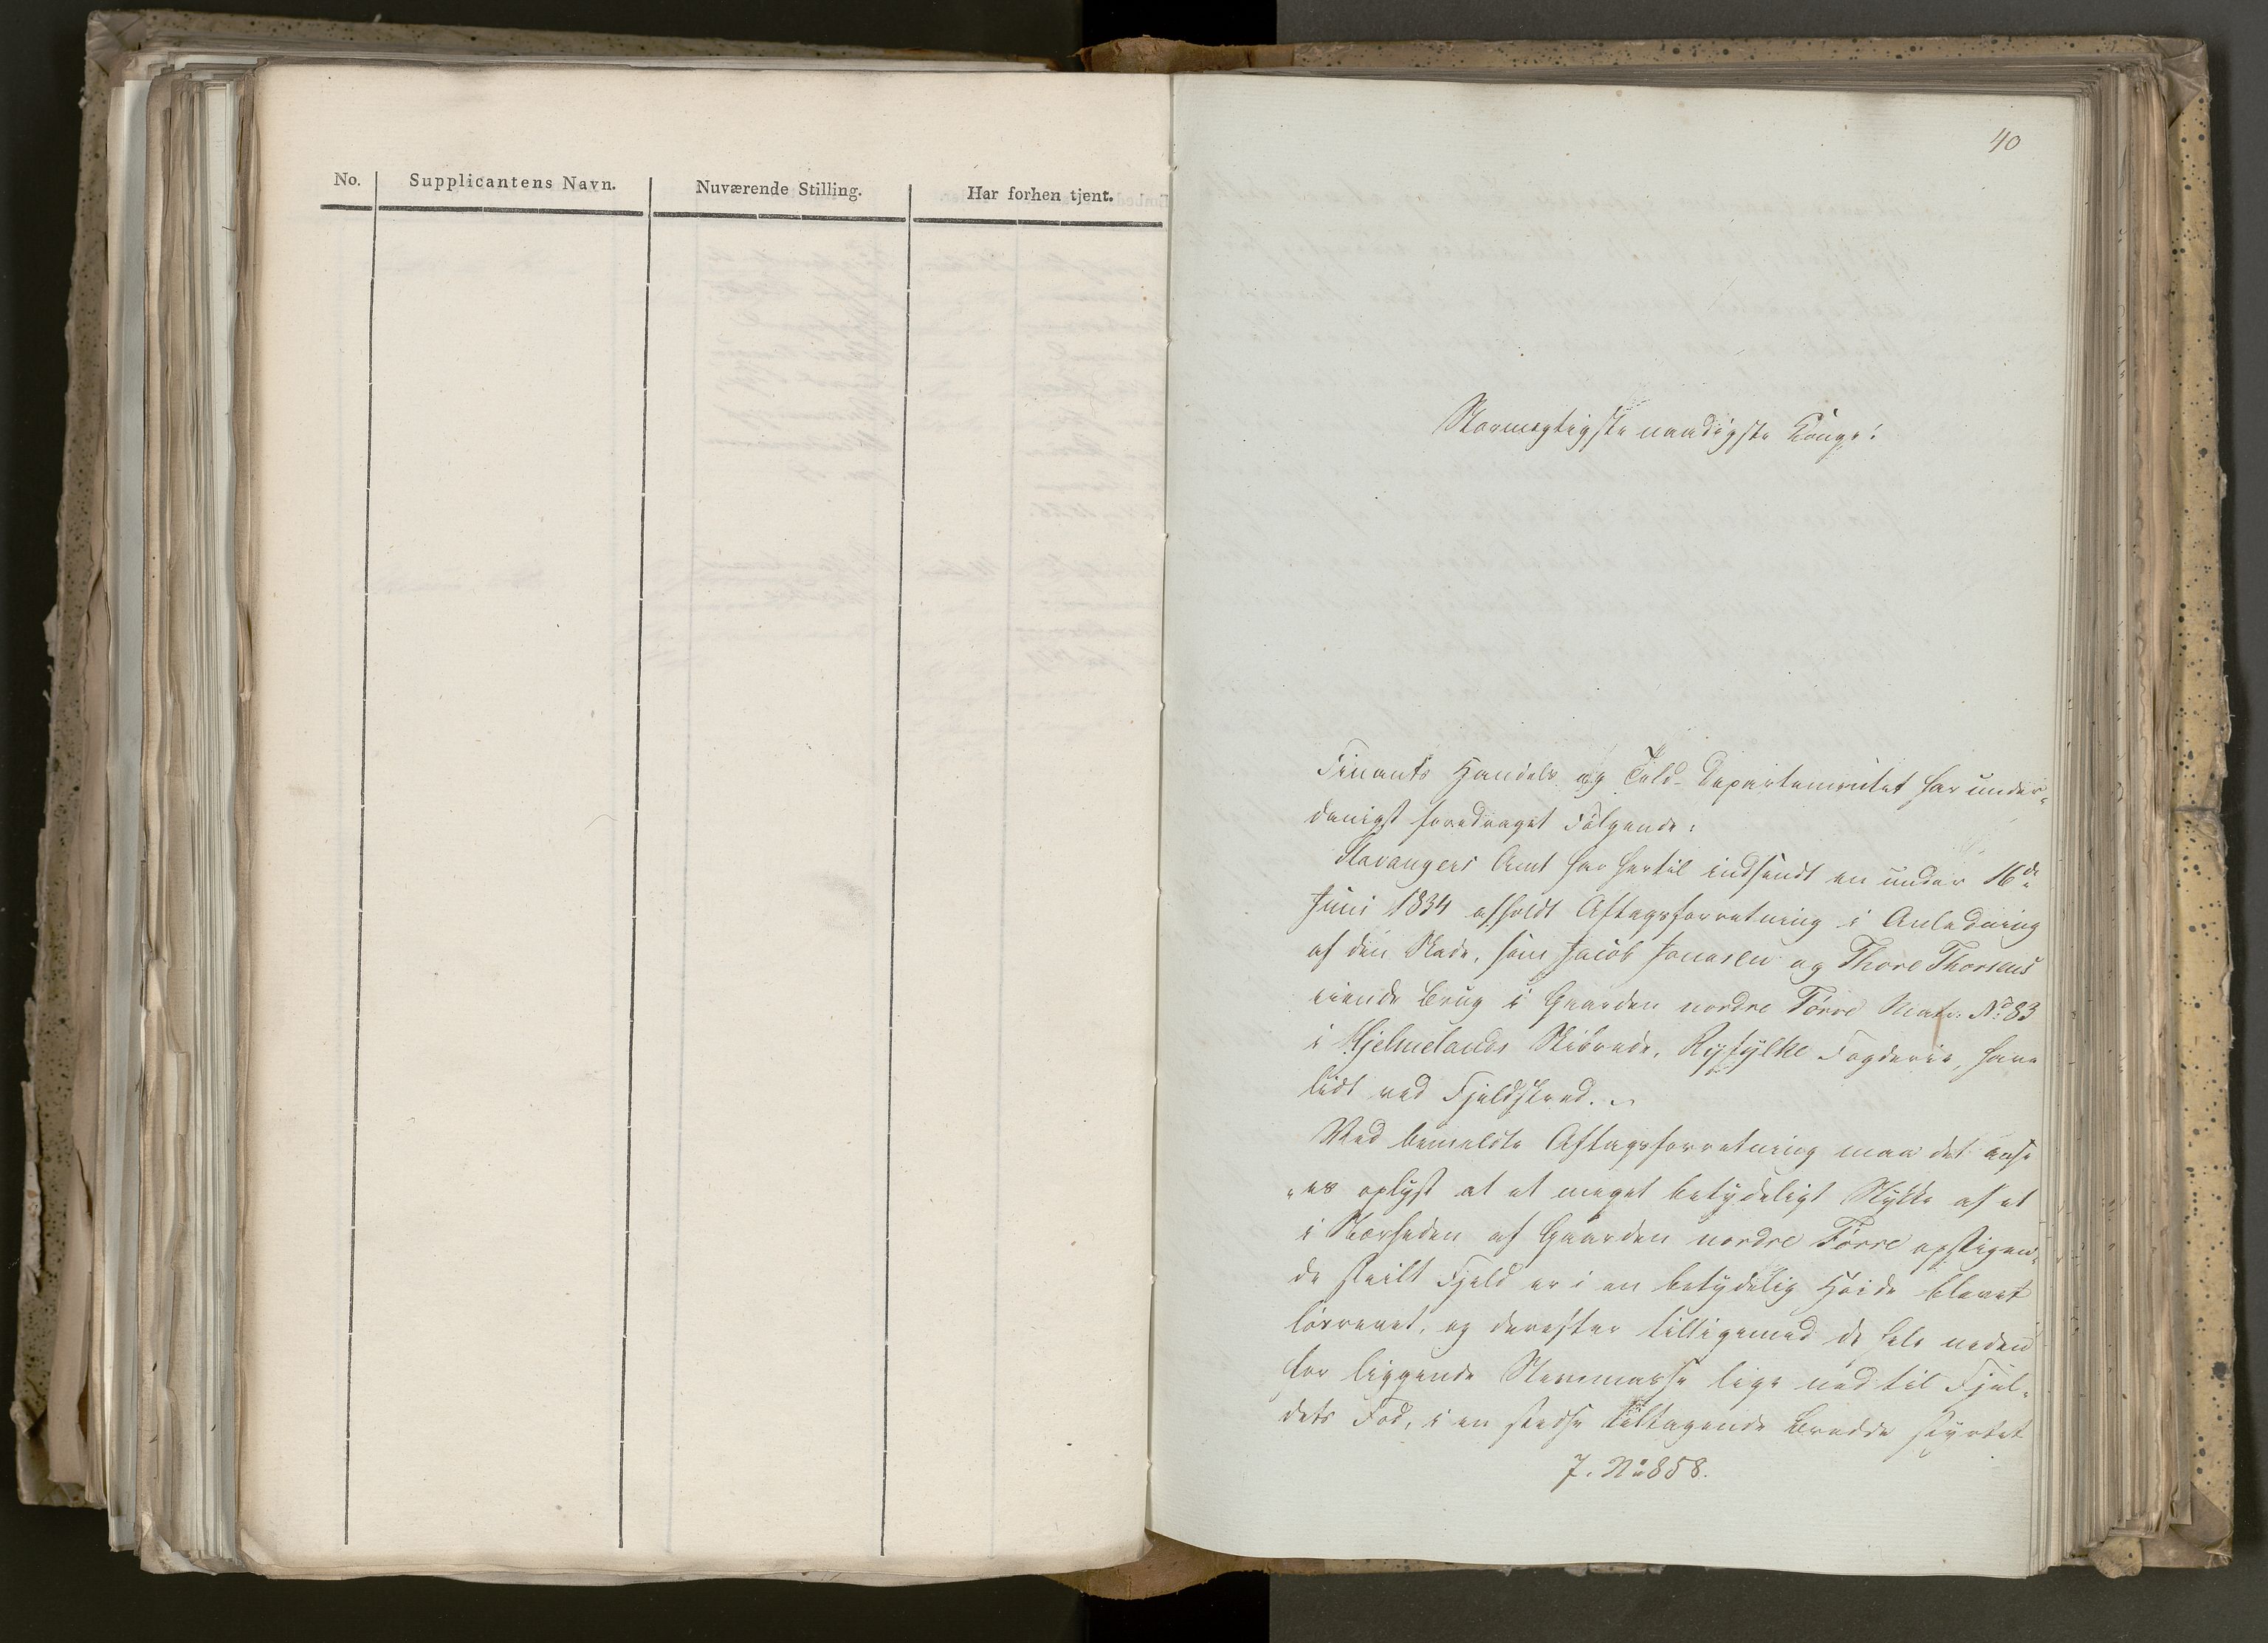 No.
Supplicantens Navn.
Nuværende Stilling.
Har forhen tjent.
40
Stormægtigste naadigste Konge!
Finants Handels og Told-Departementet har under-
danigst foredraget Følgende:
Stavangers Amt har hertil indsendt en under 16de
Juni 1834 afholdt Aftagsforretning i Anledning
af den Skade, som Jacob Jonasen og Thore Thorsens
eiende Brug i Gaarden nordre Tørre Matr: No 83
i Hjelmelands Skibrede, Ryfylke Fogderie, have
lidt ved Fjeldskred.
Ved bemeldte Aftagsforretning maa det anse
"es oplyst at et meget betydeligt Stykke af et
i Nærheden af Gaarden nordre Tørre opstigen-
de steilt Fjeld er i en betydelig Høide blevet
løsrevet, og derefter tilligemed de hele neden
for liggende Steenmasse lige ned til Fjel-
dets Fod, i en stedse tiltagende Bredde styrtet
7. No 858.